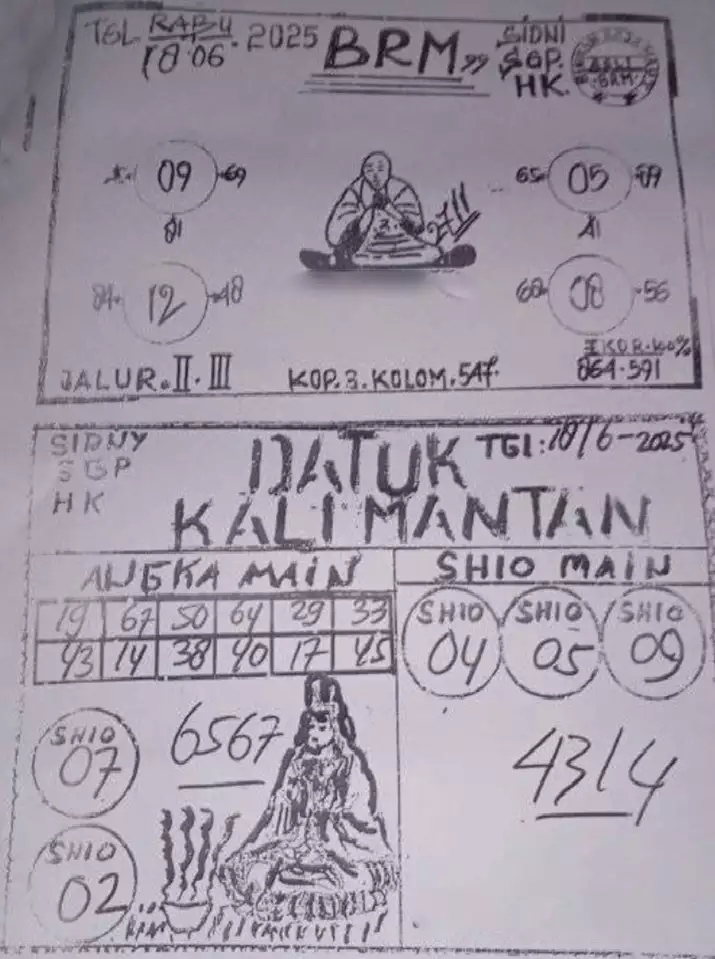 TGL RABU
18.06.2025
BRM
SIDNI
SGP.
HK.
BRM
09
69
81
65
05
A1
12
48
60
08
56
3
27
JALUR. II. III
KOP. 3. KOLOM. 547.
EKOR. 100%
864.591
SIDNY
SGP
HK
DATUK
KALIMANTAN
TGl: 18/6-2025
ANGKA MAIN
19 67 50 64 29 33
43 14 38 40 17 45
SHIO MAIN
SHIO
04
SHIO
05
SHIO
09
SHIO
07
6567
4314
SHIO
02